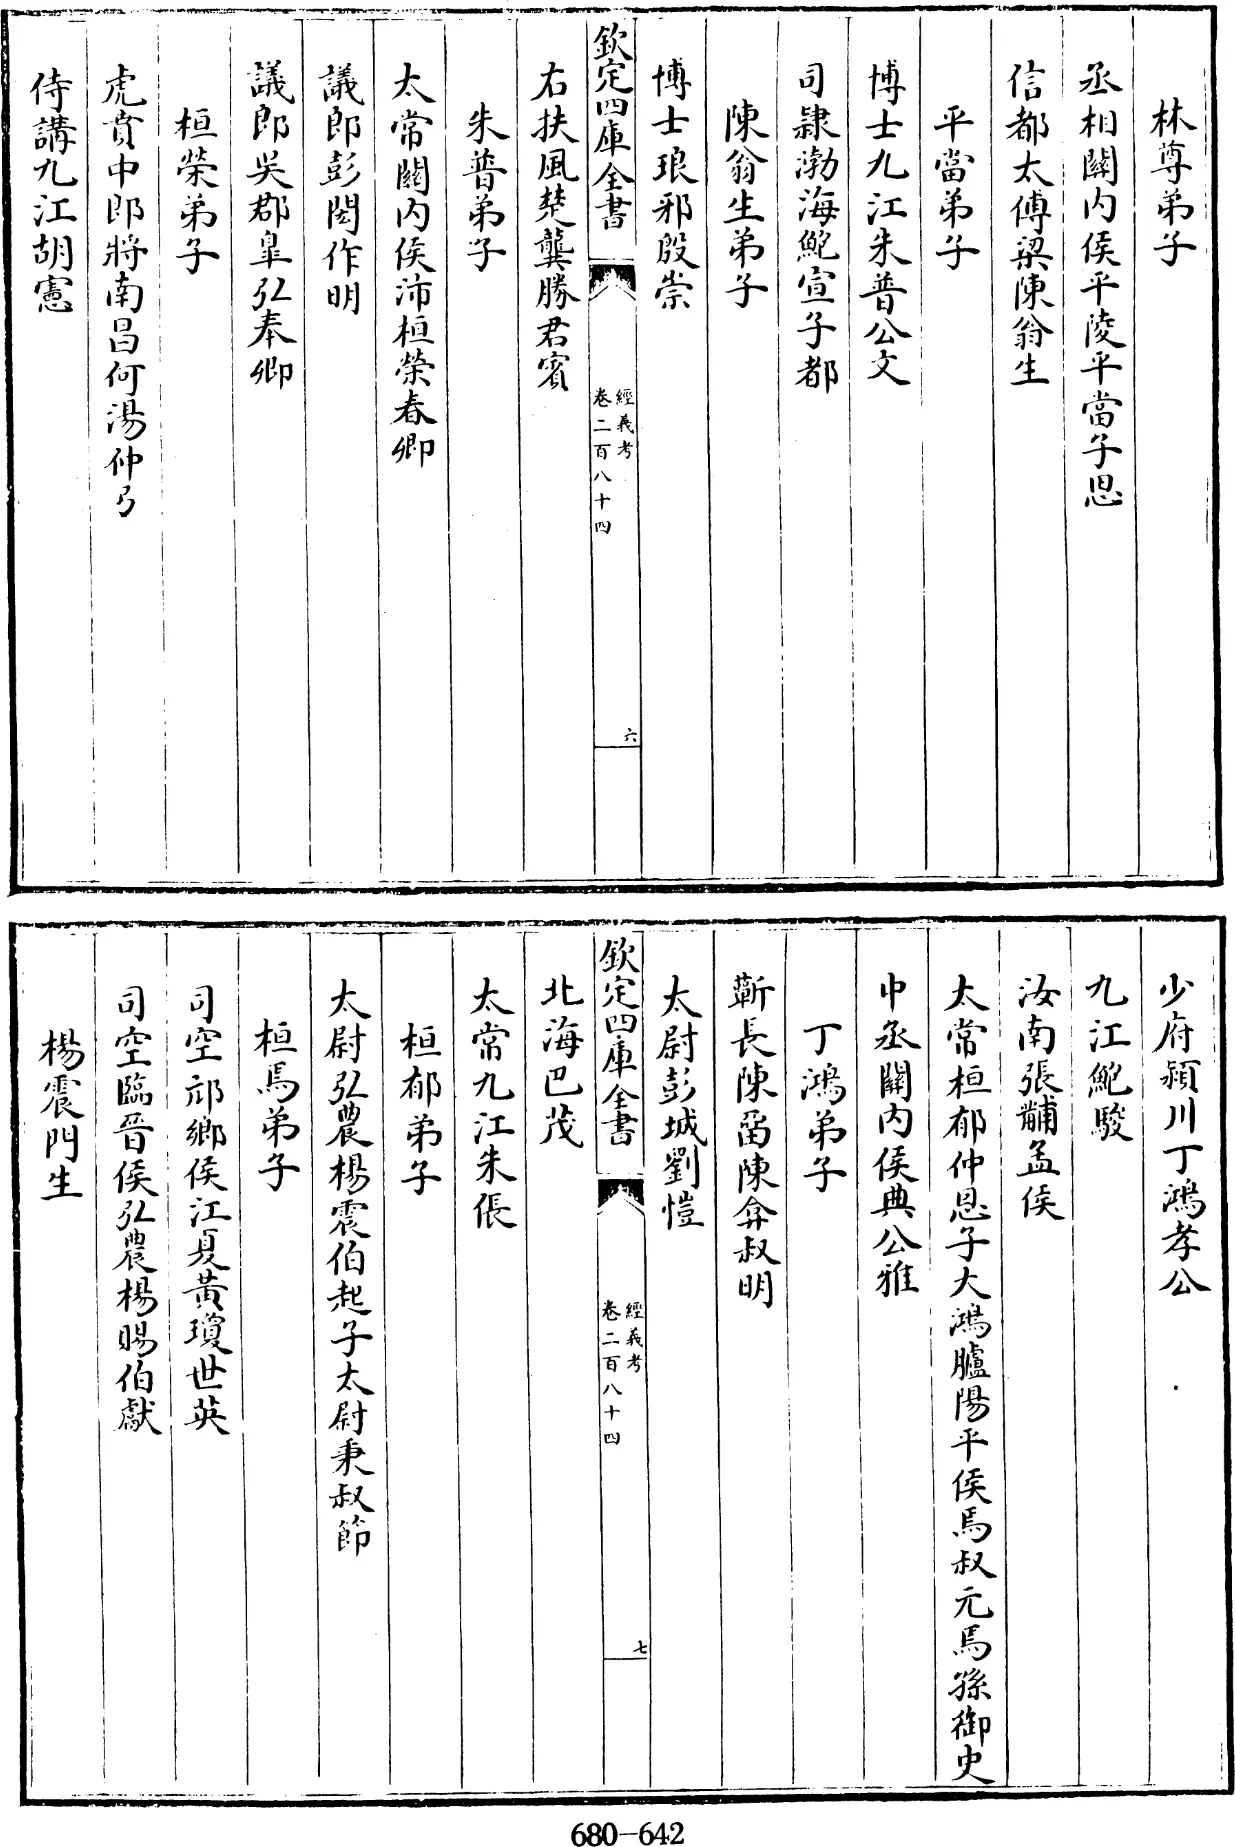 林尊弟子
丞相關内侯平陵平當子思
信都太傅梁陳翁生
平當弟子
博士九江朱普公文
司隸渤海鮑宣子都
陳翁生弟子
博士琅邪殷崇
欽定四庫全書
經義考
卷二百八十四
六
右扶風楚龔勝君賓
朱普弟子
太常關内侯沛桓榮春卿
議郎彭閎作明
議郎吳郡皐弘奉卿
桓榮弟子
虎賁中郎將南昌何湯仲弓
侍講九江胡憲
少府潁川丁鴻孝公
九江鮑駿
汝南張酺孟侯
太常桓郁仲恩子大鴻臚陽平侯焉叔元焉孫御史
中丞關内侯典公雅
丁鴻弟子
蘄長陳畱陳弇叔明
太尉彭城劉愷
欽定四庫全書
經義考
卷二百八十四
七
北海巴茂
太常九江朱倀
桓郁弟子
太尉弘農楊震伯起子太尉秉叔節
桓焉弟子
司空邟鄉侯江夏黃瓊世英
司空臨晉侯弘農楊賜伯獻
楊震門生
680-642